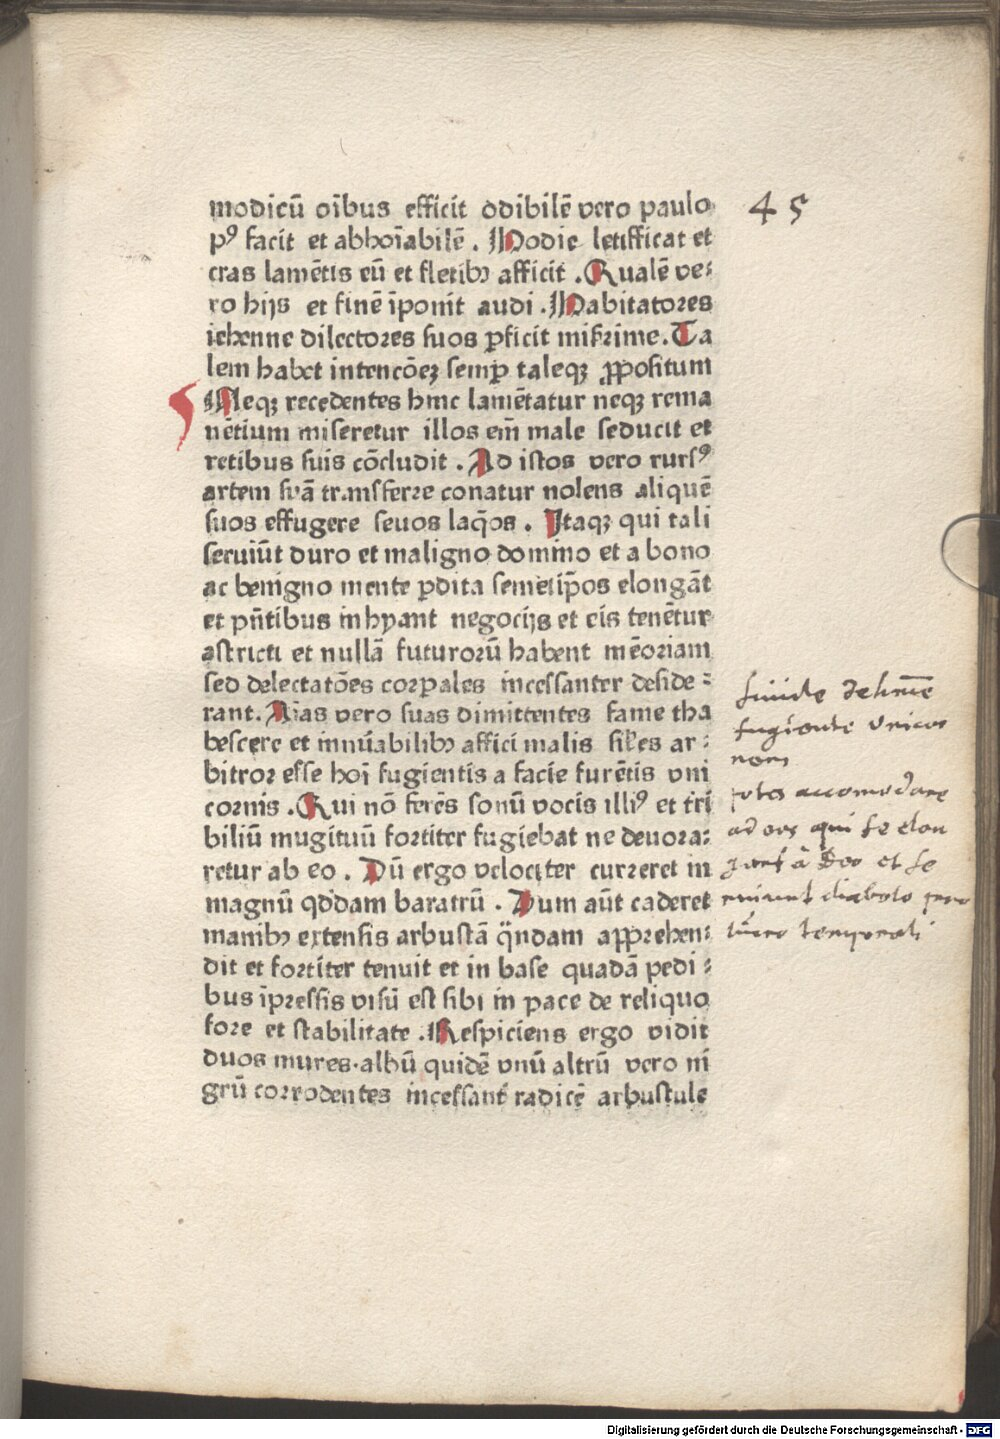 45
modicū oībus efficit odibilē vero paulo
pꝰ facit et abhoīabilē . Hodie letifficat et
cras lamētis eū et fletibꝫ afficit . Qualē ve⸗
ro hijs et finē īponit audi . Habitatores
iehenne dilectores suos ꝑficit misꝛime. Ta
lem habet intencōeꝫ semꝑ taleqꝫ ꝓpositum
Neqꝫ recedentes hinc lamētatur neqꝫ rema
nētium miseretur illos em̄ male seducit et
retibus suis cōcludit . Ad istos vero rursꝰ
artem suā transferre conatur nolens aliquē
suos effugere seuos laq̄os . Itaqꝫ qui tali
seruiūt duro et maligno domino et a bono
ac benigno mente ꝑdita semetip̄os elongāt
et pn̄tibus inhyant negocijs et eis tenētur
astricti et nullā futurorū habent mēoriam
sed delectatōes corꝑales incessanter deside⸗
rant. Aīas vero suas dimittentes fame tha
bescere et innūabilibꝫ affici malis sil̄es ar⸗
bitror esse hoī fugientis a facie furētis vni
cornis . Qui nō ferēs sonū vocis illiꝰ et tri
biliū mugituū fortiter fugiebat ne deuora⸗
retur ab eo . Dū ergo velociter curreret in
magnū qd̄dam baratrū . Dum aūt caderet
manibꝫ extensis arbustā q̄ndam apprehen⸗
dit et fortiter tenuit et in base quadā pedi⸗
bus īpressis visū est sibi in pace de reliquo
fore et stabilitate . Respiciens ergo vidit
duos mures·albū quidē vnū altrū vero ni
grū corrodentes incessant̄ radicē arbustule
fugiente vnicor
accomodare
ad eos qui se elon
gant à Deo et se
ruiunt diabolo pro
lucro temporali
Digitalisierung gefördert durch die Deutsche Forschungsgemeinschaft - DFG